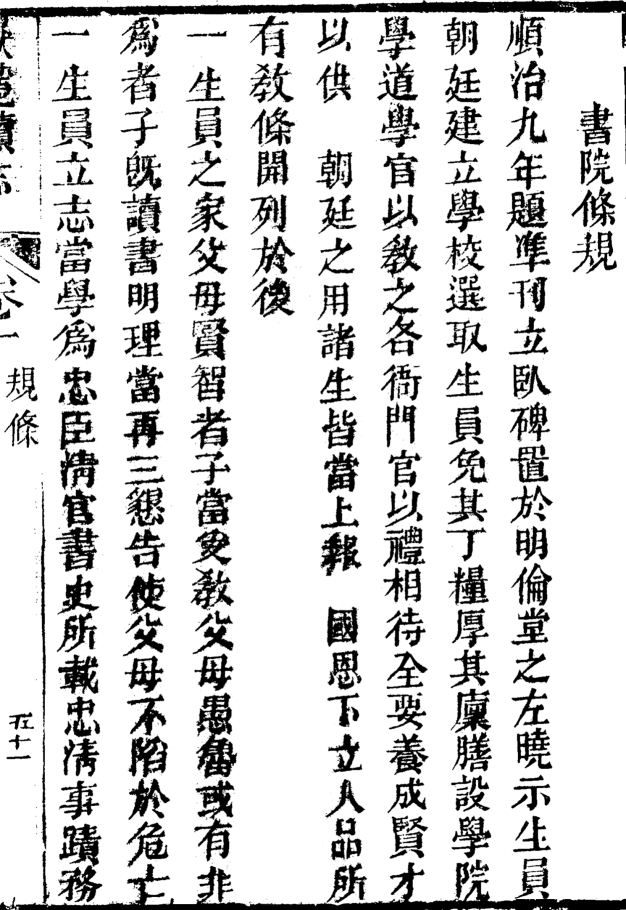 書院條規
順治九年題準刊立臥碑置於明倫堂之左曉示生員
朝廷建立學校選取生員免其丁糧厚其廩膳設學院
學道學官以教之各衙門官以禮相待全要養成賢才
以供　朝廷之用諸生皆當上報　國恩下立人品所
有教條開列於後
一生員之家父母賢智者子當受教父母愚魯或有非
爲者子旣讀書明理當再三懇告使父母不陷於危亡
一生員立志當學爲忠臣清官書史所載忠清事蹟務
卷一
規條
五十一